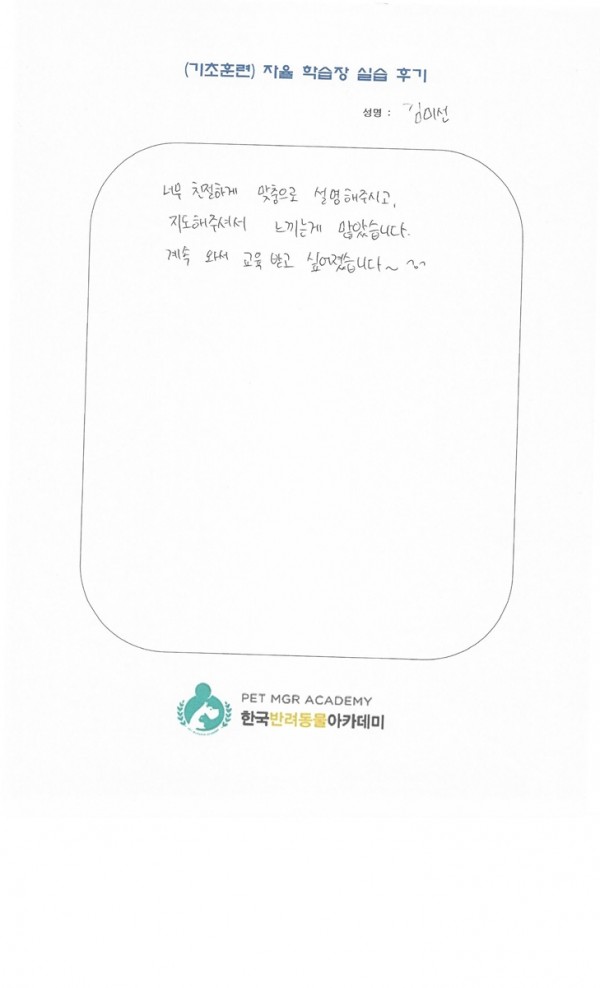 (기초훈련) 자율 학습장 실습 후기
성명 : 김미선
너무 친절하게 맞춤으로 설명해주시고,
지도해주셔서 느끼는게 많았습니다.
계속 와서 교육 받고 싶어졌습니다~ ^^
PET MGR ACADEMY
한국반려동물아카데미